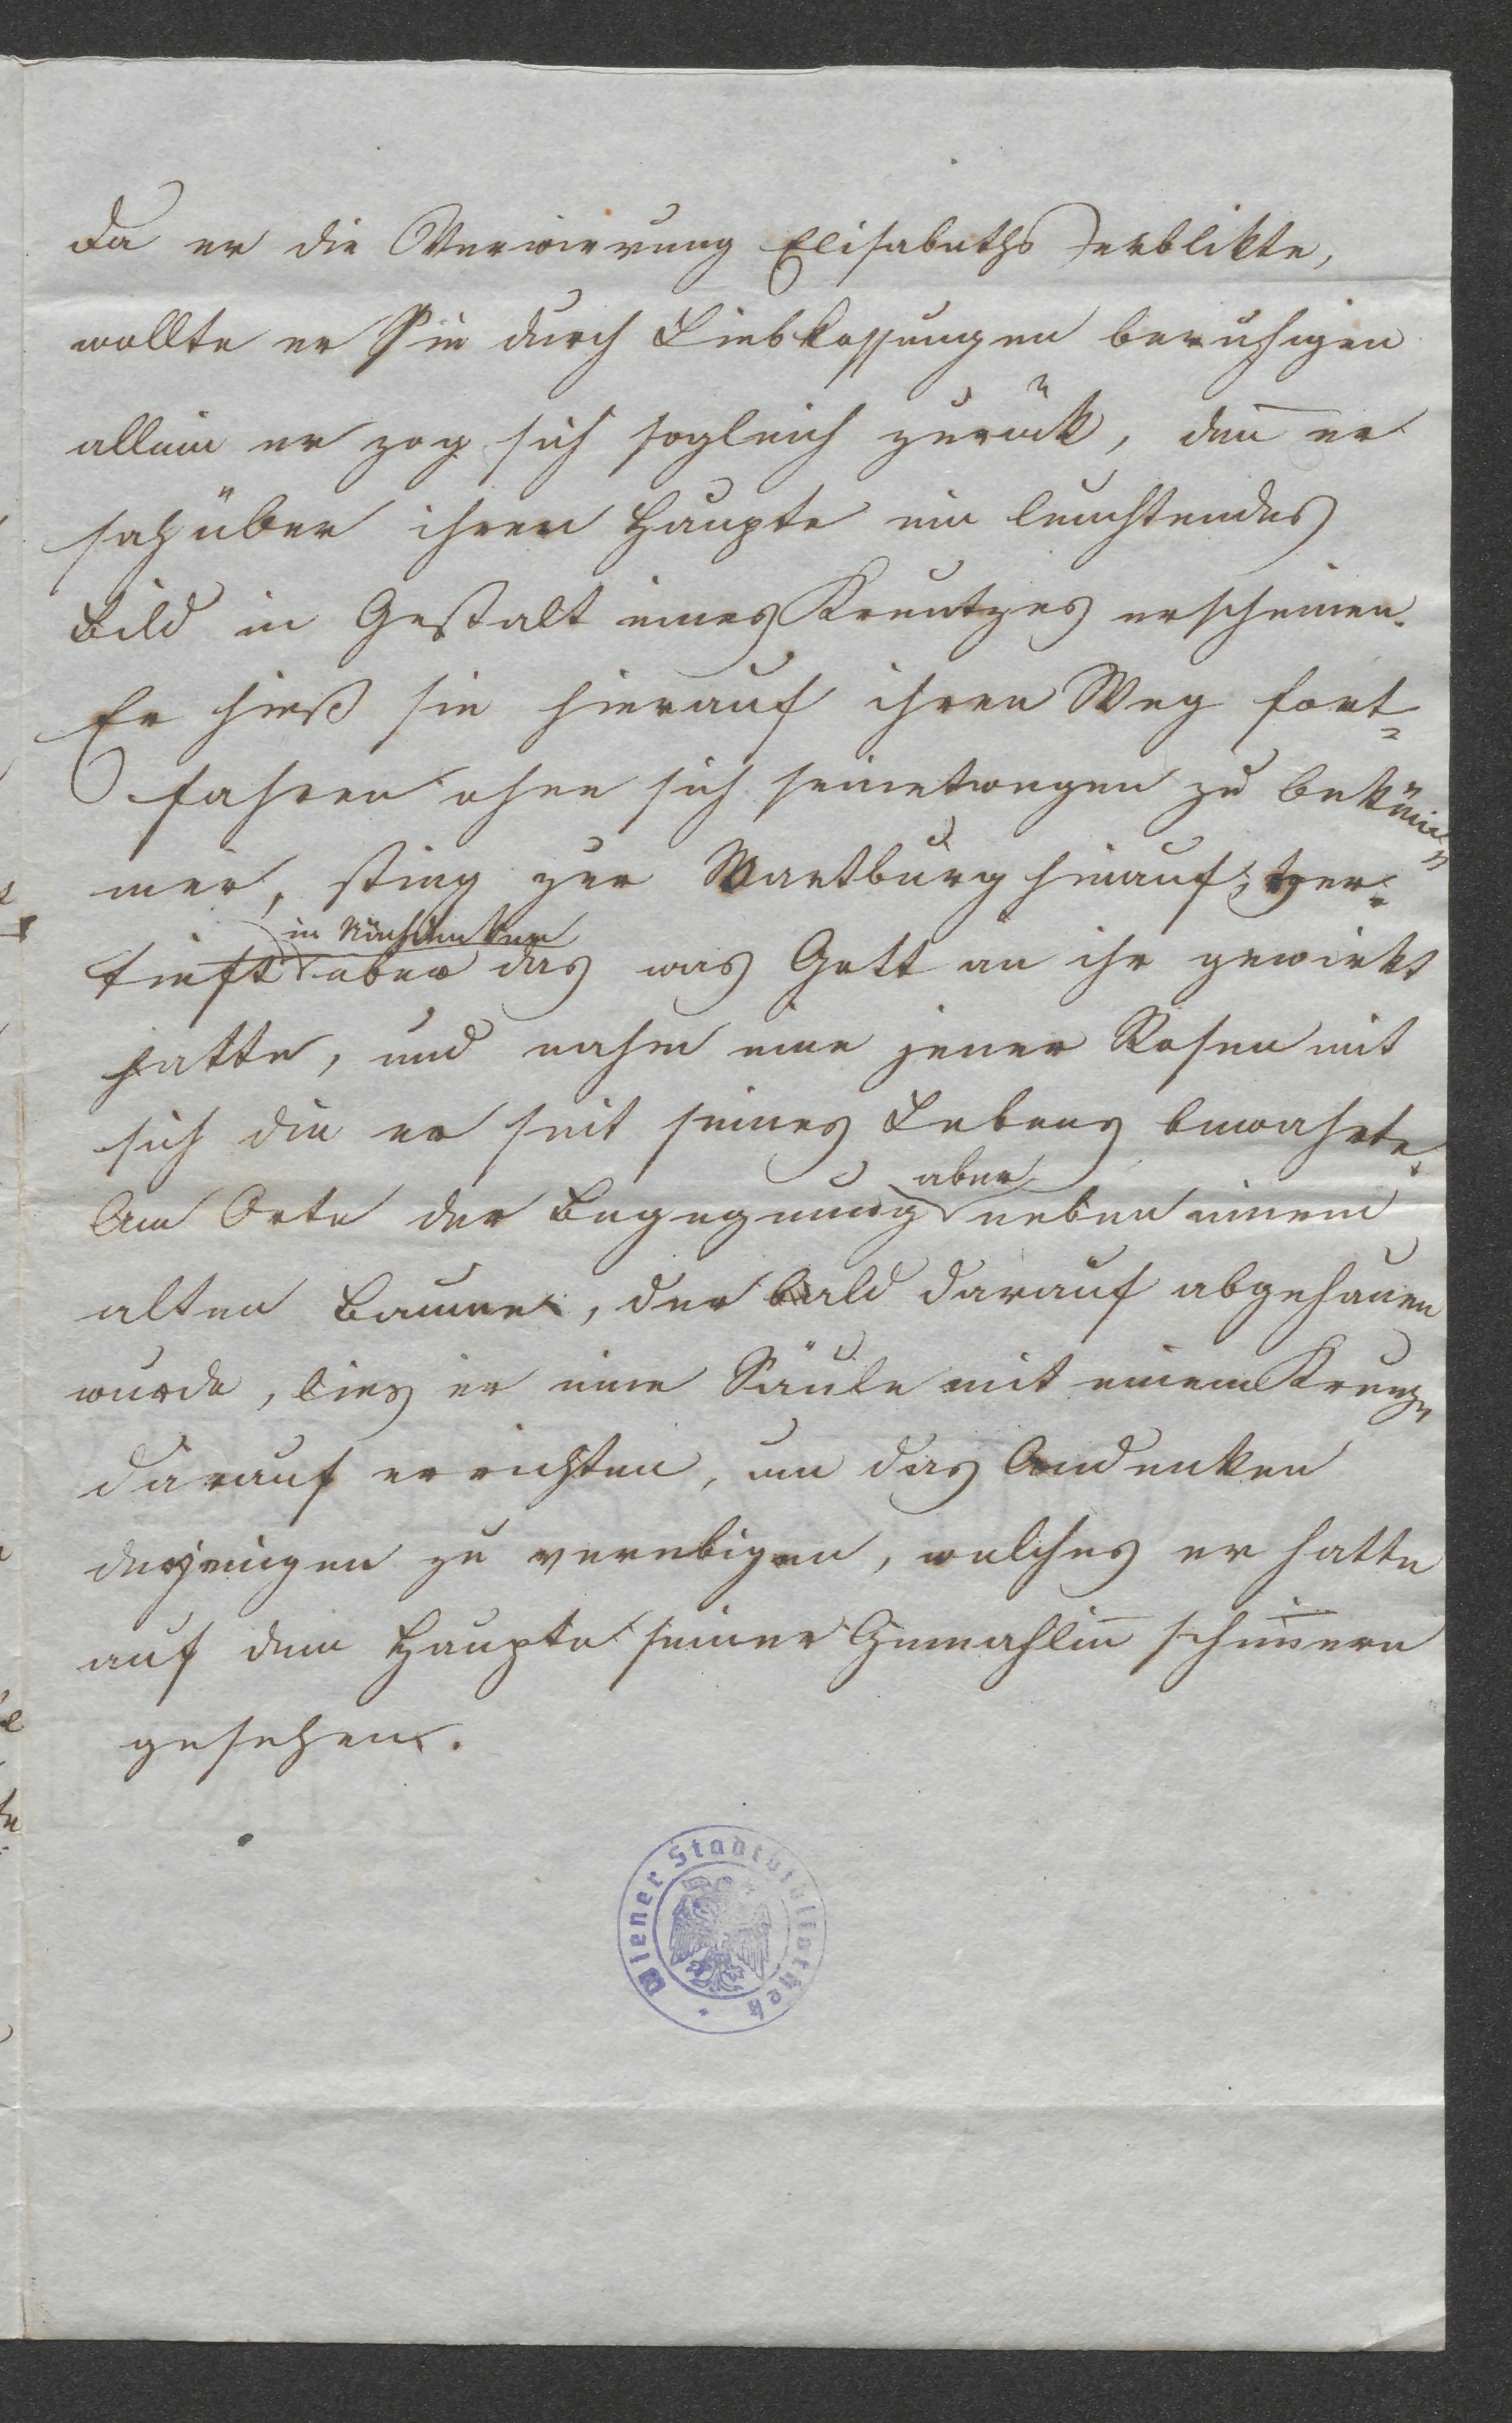 da er die Verwirrung Elisabeths erblikte,
wollte er Sie durch Liebkossungen beruhigen
allein er zog sich sogleich zurück, den̅ er
sah über ihren Haupte ein leuchtendes
Bild in Gestalt eines Kreutzes erscheinen.
Er hieß sie hierauf ihren Weg fort=
fahren ohne sich seinetwegen zu beküm̅
mern, stieg zur Wartburg hinauf, ver=
in Nachdenken
tieft über das was Gott an ihr gewirkt
hatte, und nahm eine jener Rosen mit
sich die er seit seines Lebens bewahrte.
aber
Am Orte der Begegnung neben einem
alten Baume, der bald darauf abgehauen
wurde, lies er eine Säule mit einem Kreuze
darauf errichten, um das Andenken
desjenigen zu verebigen, welches er hatte
auf dem Haupte seiner Gemahlin̅ schim̅ern
gesehen.
Wiener Stadtbibliothek